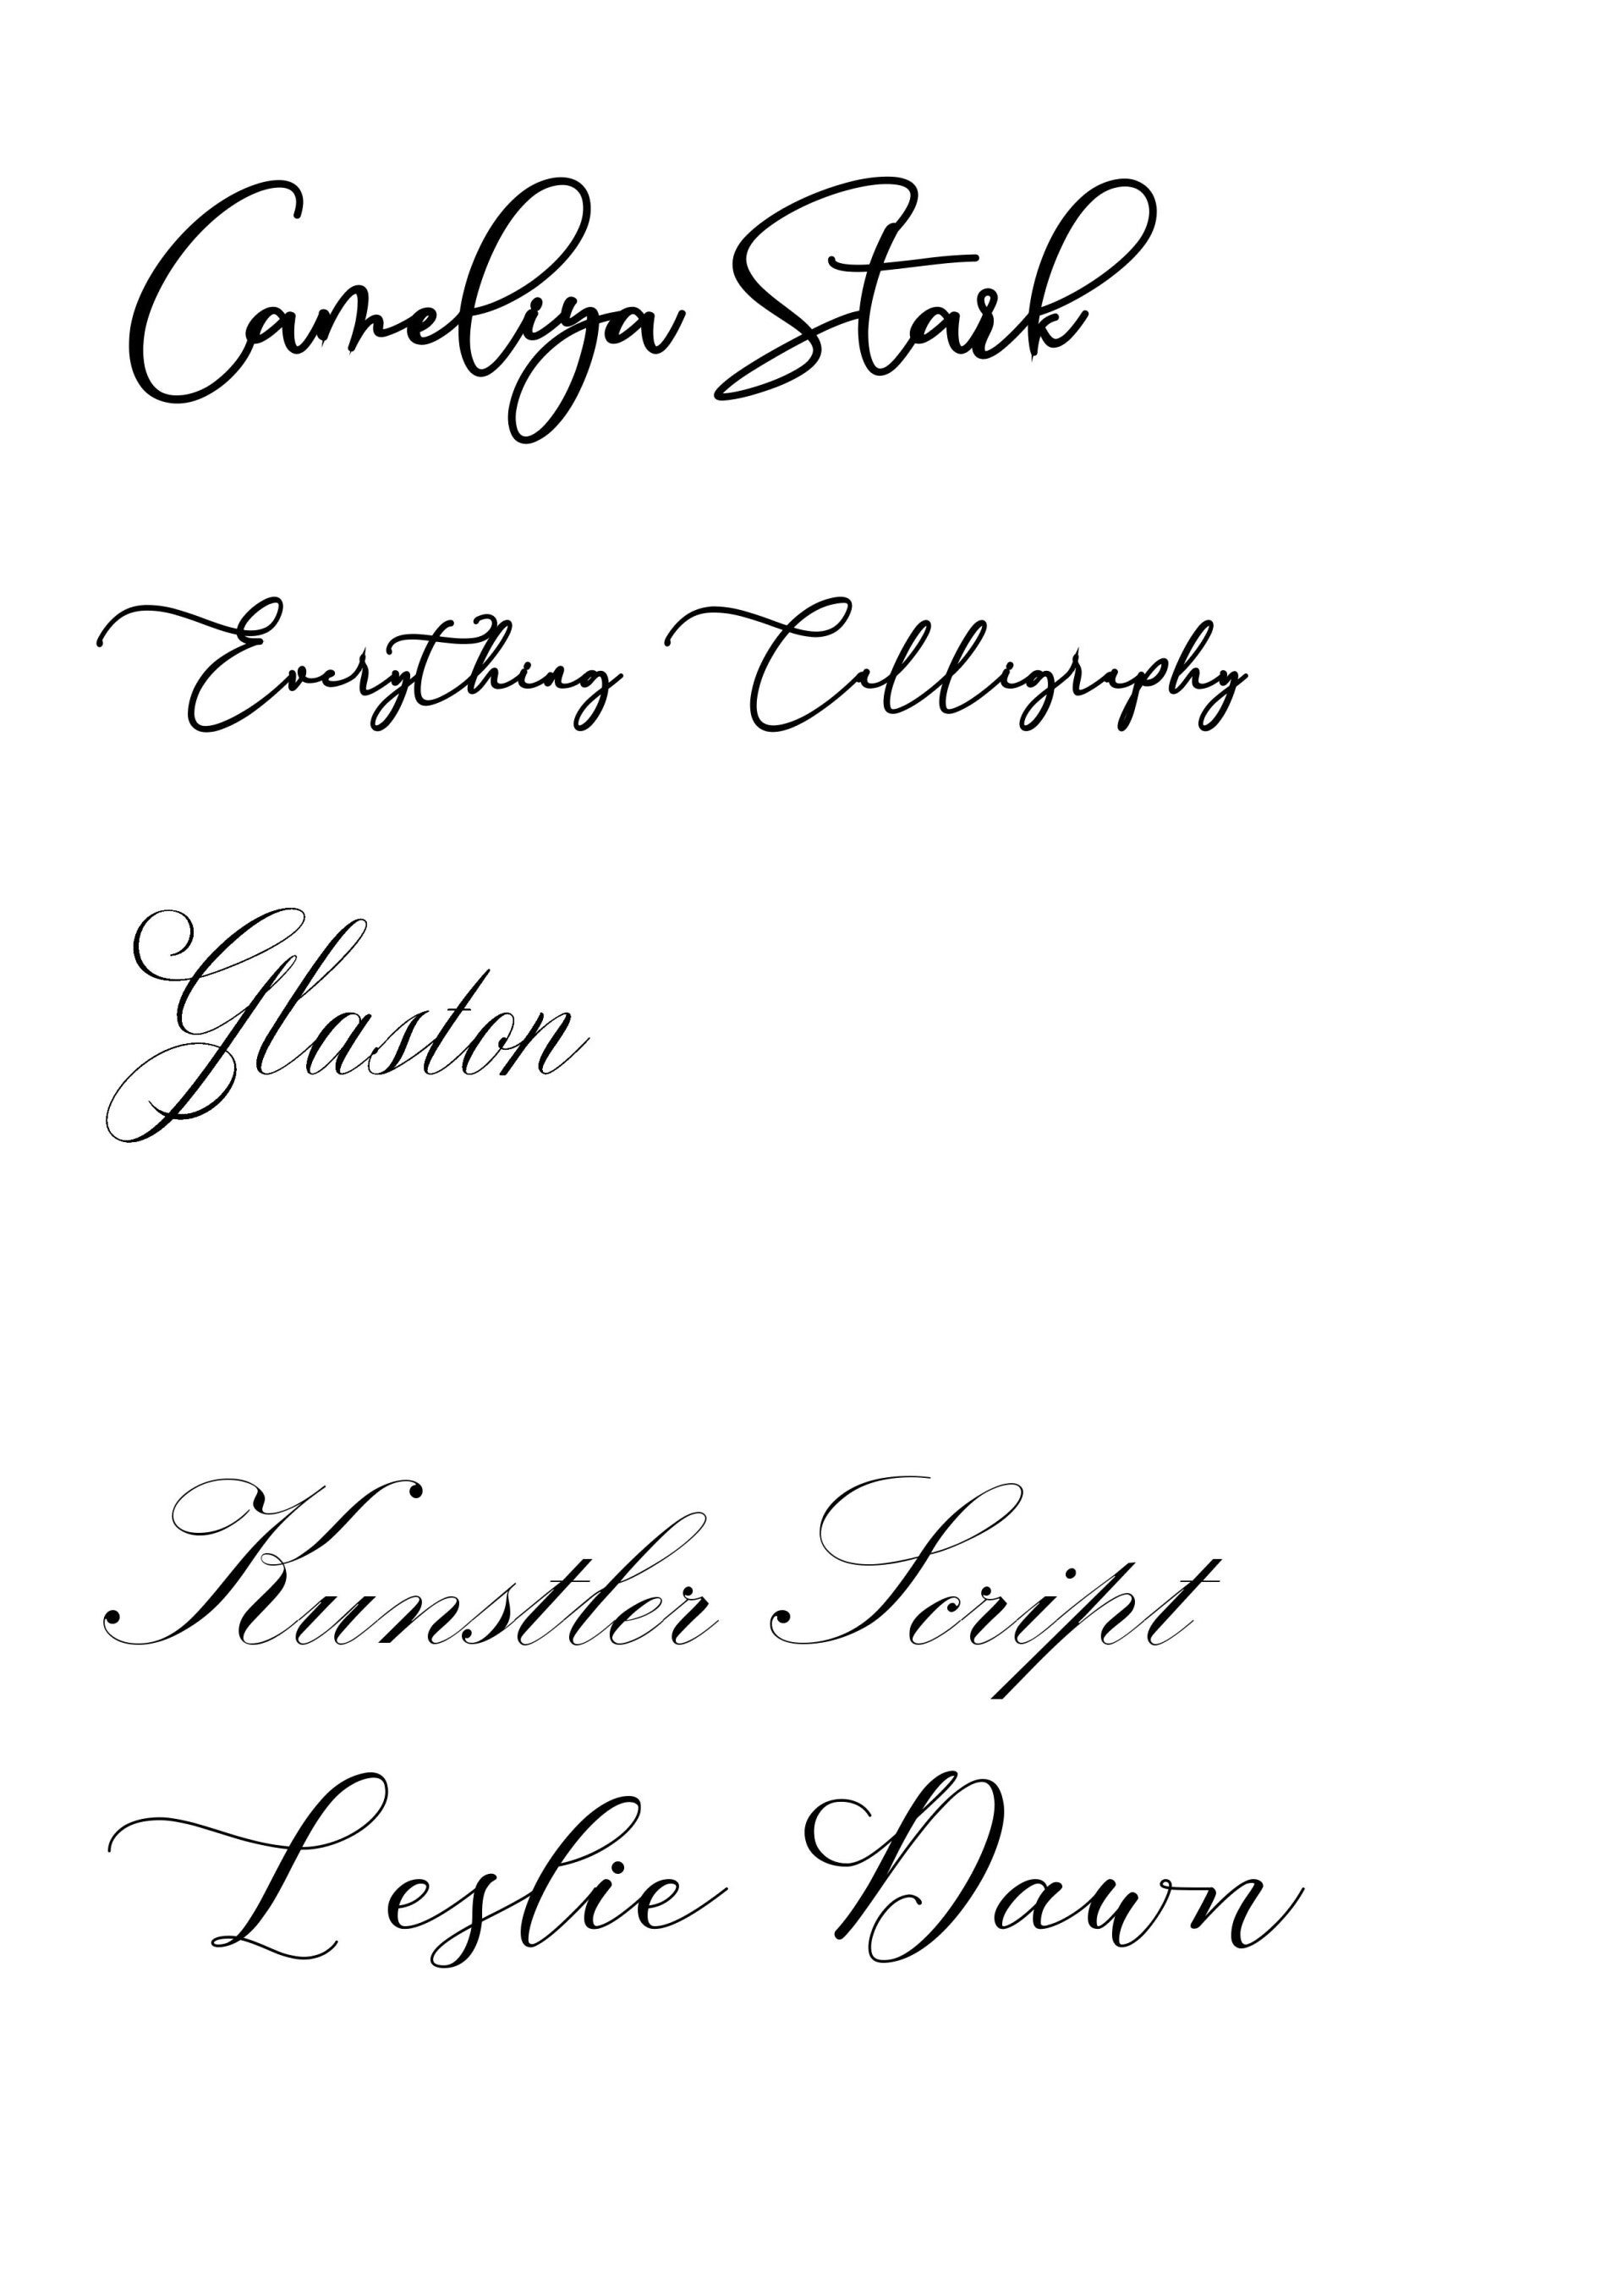 Cameliya Stark
Everything Calligraphy
Glaston
Kunstler Script
Leslie Dawn